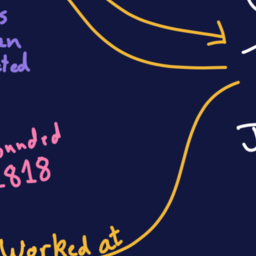 s
an
ted
ounded
1818
Worked at
J